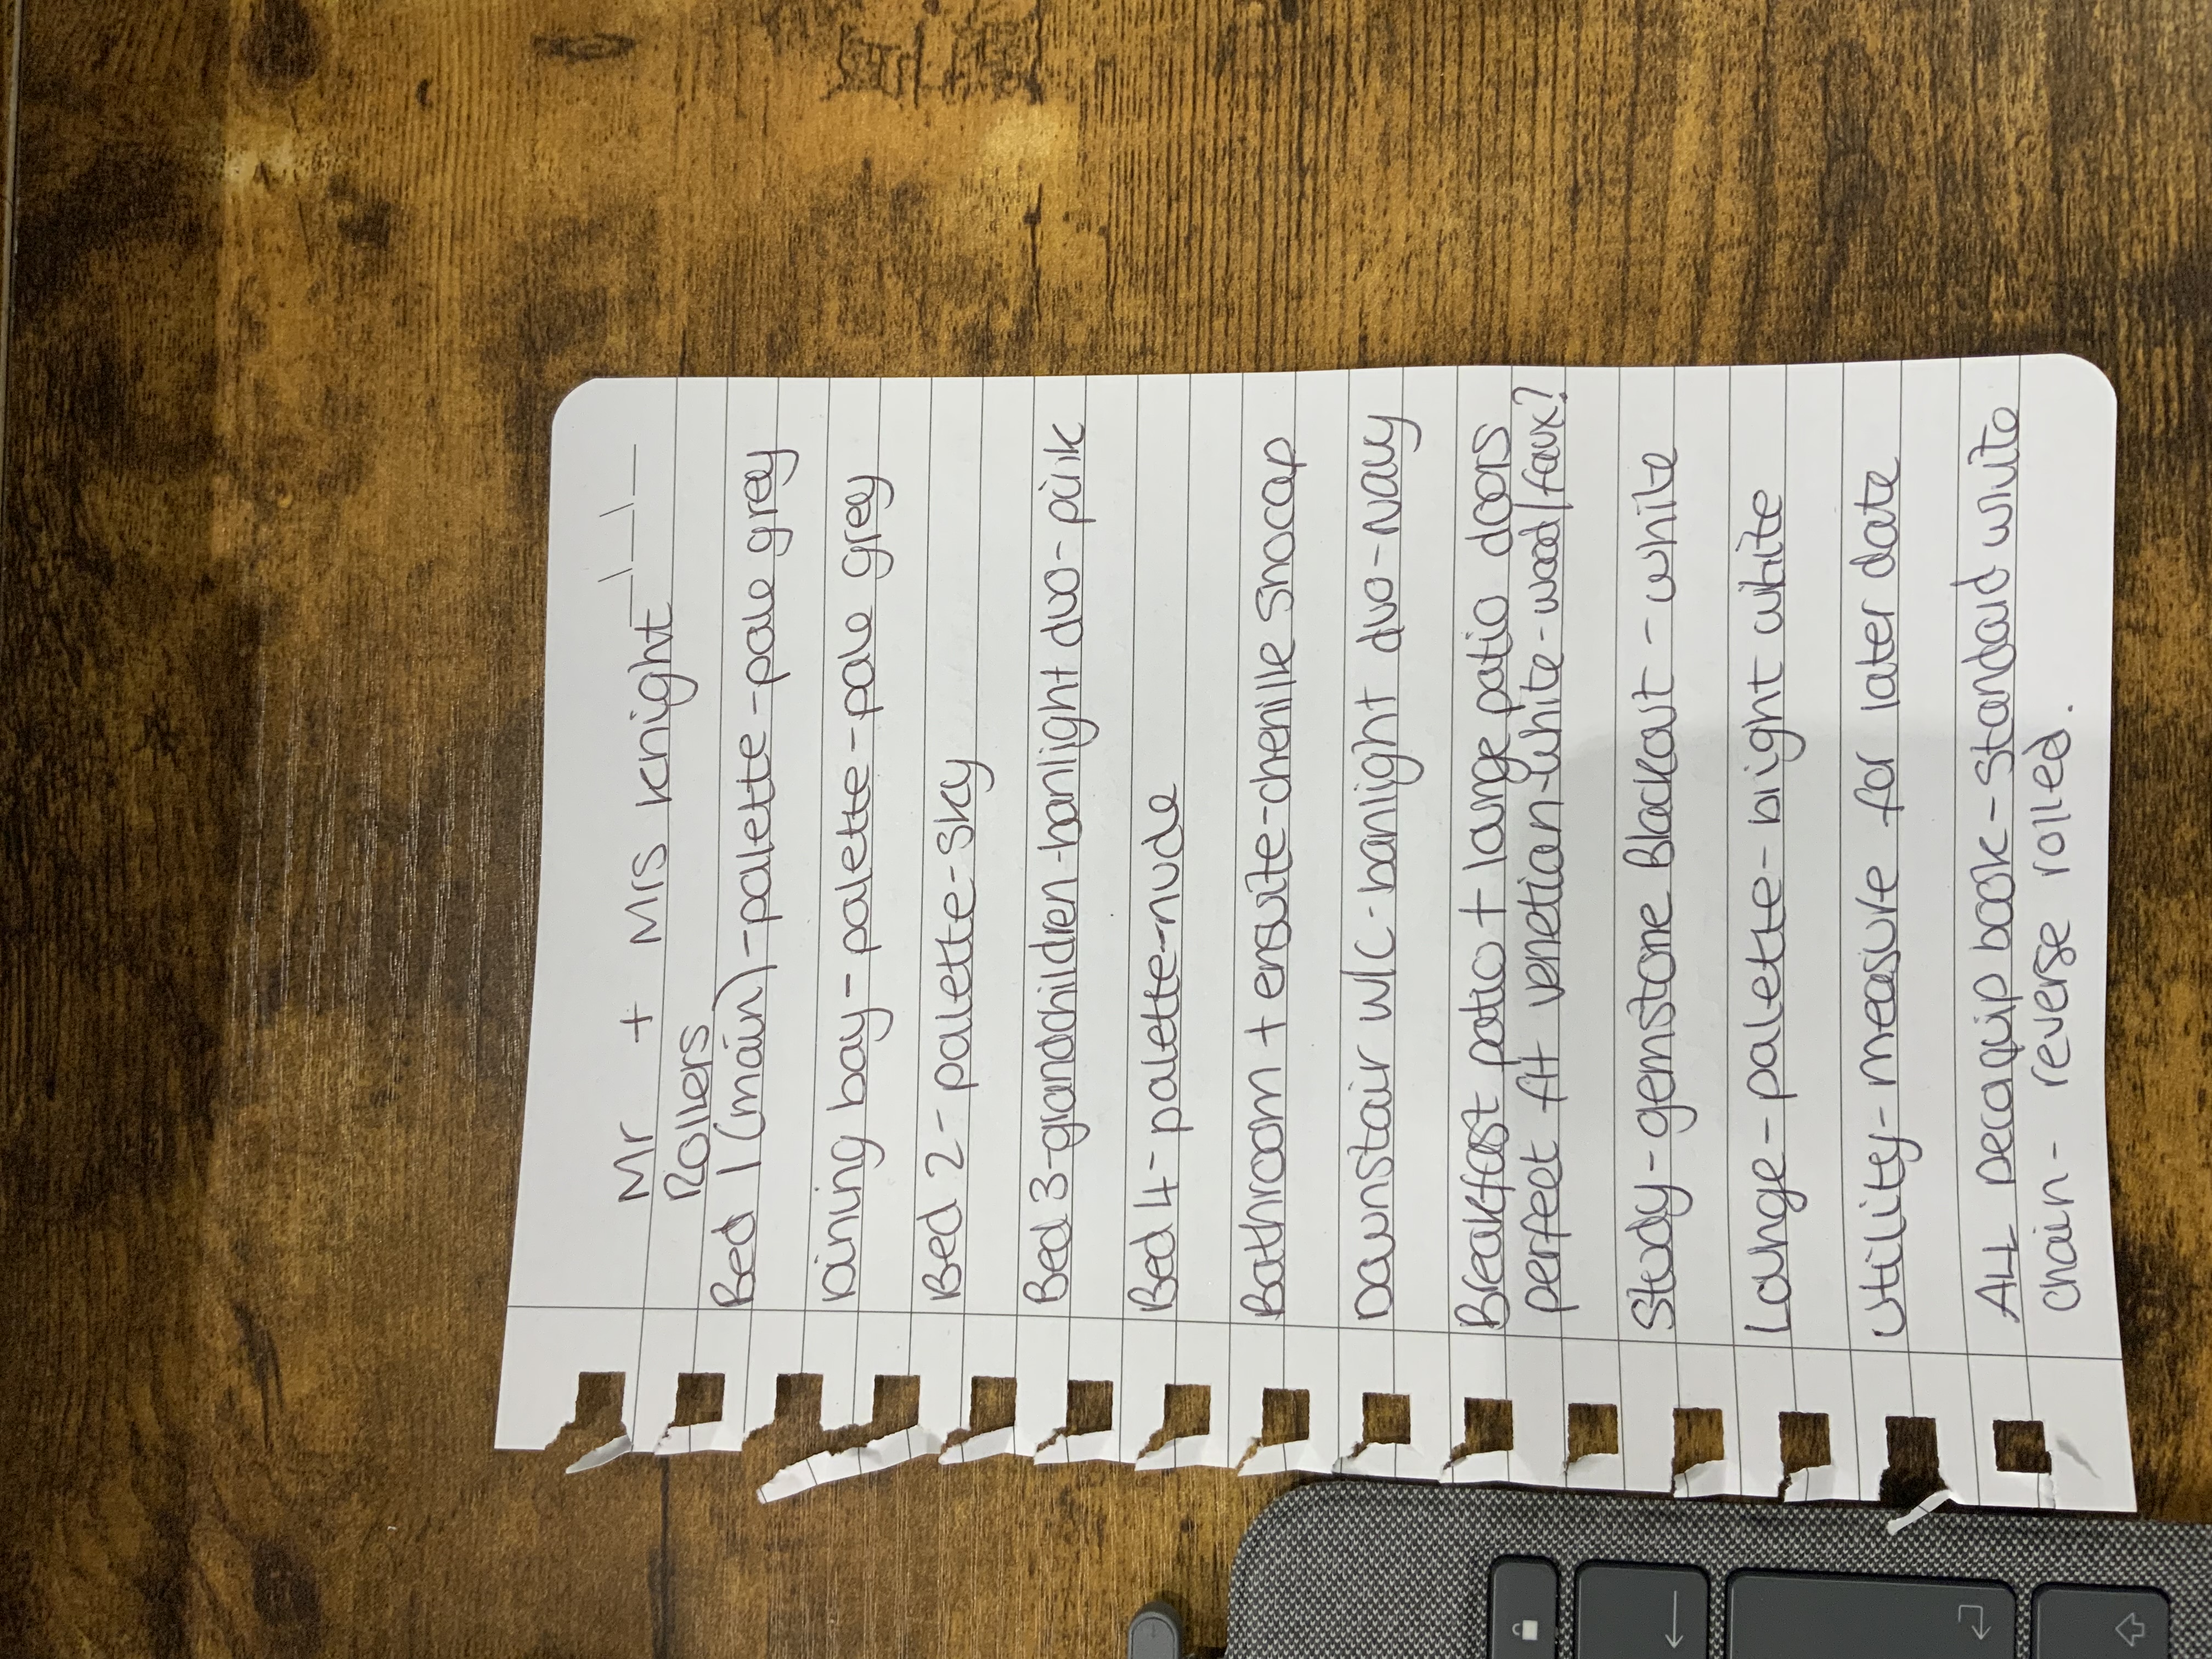 Mr + Mrs Knight _/_/_
Rollers
Bed 1 (main) - palette - pale grey
Dining bay - palette - pale grey
Bed 2 - palette - sky
Bed 3 - grandchildren - banlight duo - pink
Bed 4 - palette - nude
Bathroom + ensuite - chenille snocap
Downstair W/C - banlight duo - navy
Breakfast patio + lounge patio doors
perfect fit venetian - white - wood/faux?
Study - gemstone Blackout - white
Lounge - palette - bright white
Utility - measure for later date
ALL Decoquip book - standard white
chain - reverse rolled.